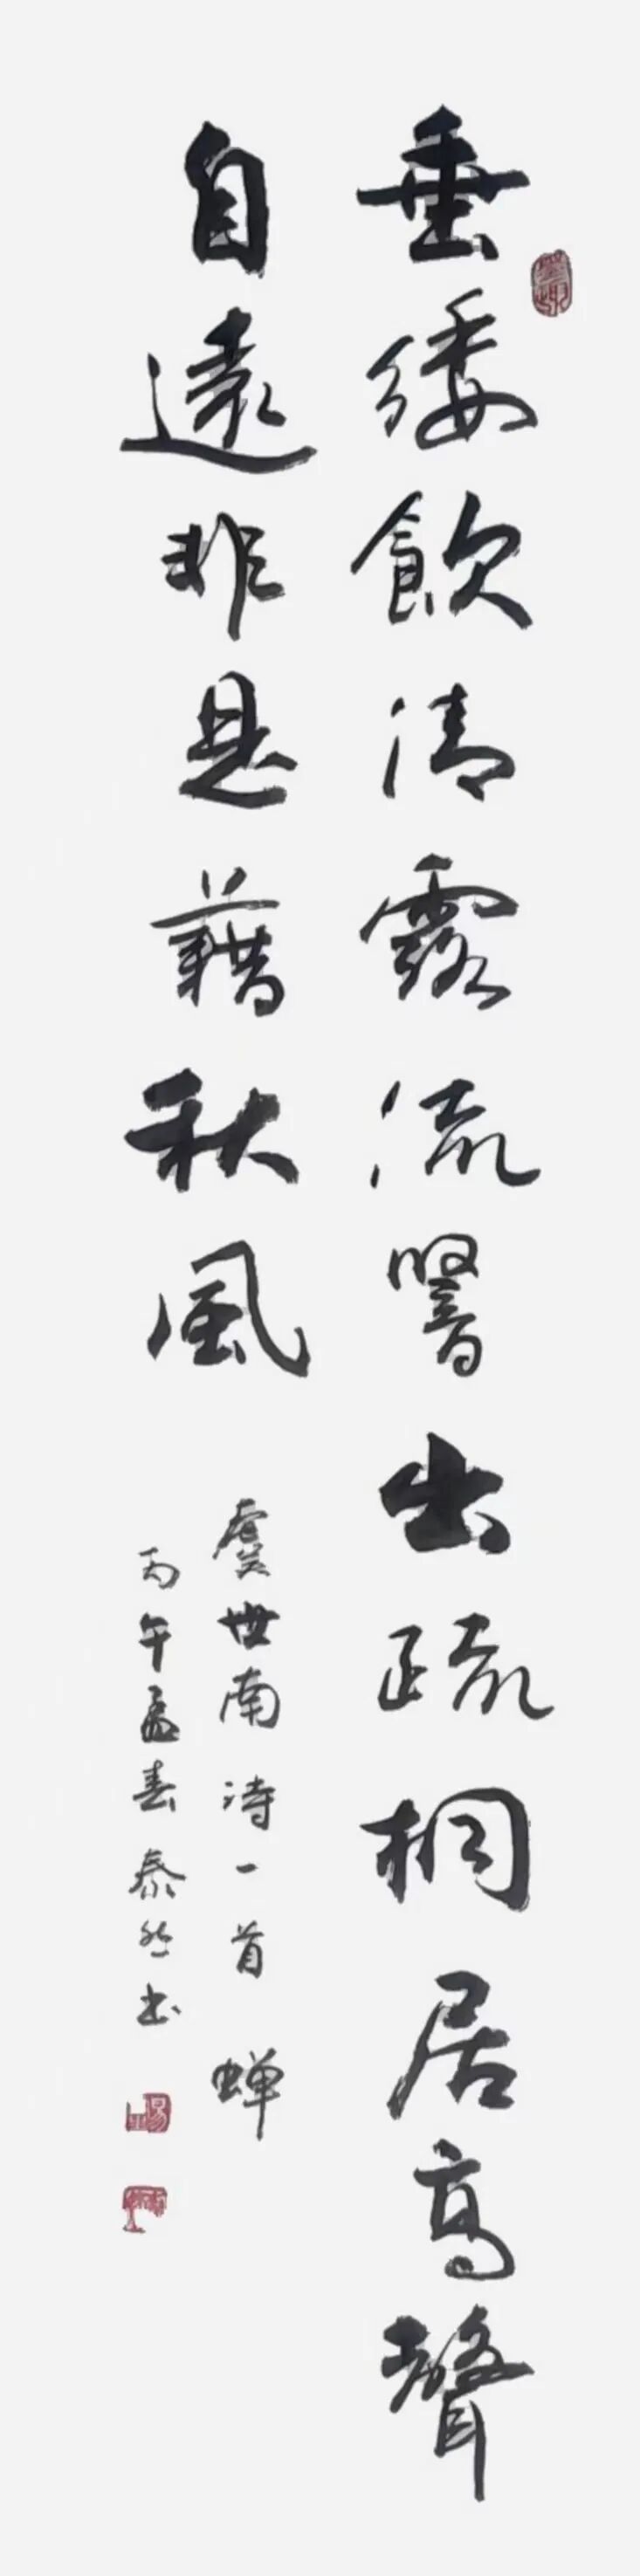 垂緌飲清露流響出疏桐居高聲
自遠非是藉秋風
虞世南詩一首 蝉
丙午孟春泰然书